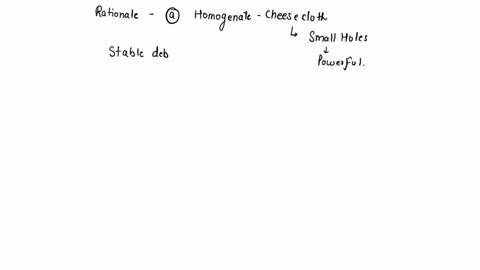 Rationale - ⓐ Homogenate - Cheese cloth
↳ Small Holes
↓
Stable deb
Powerful.